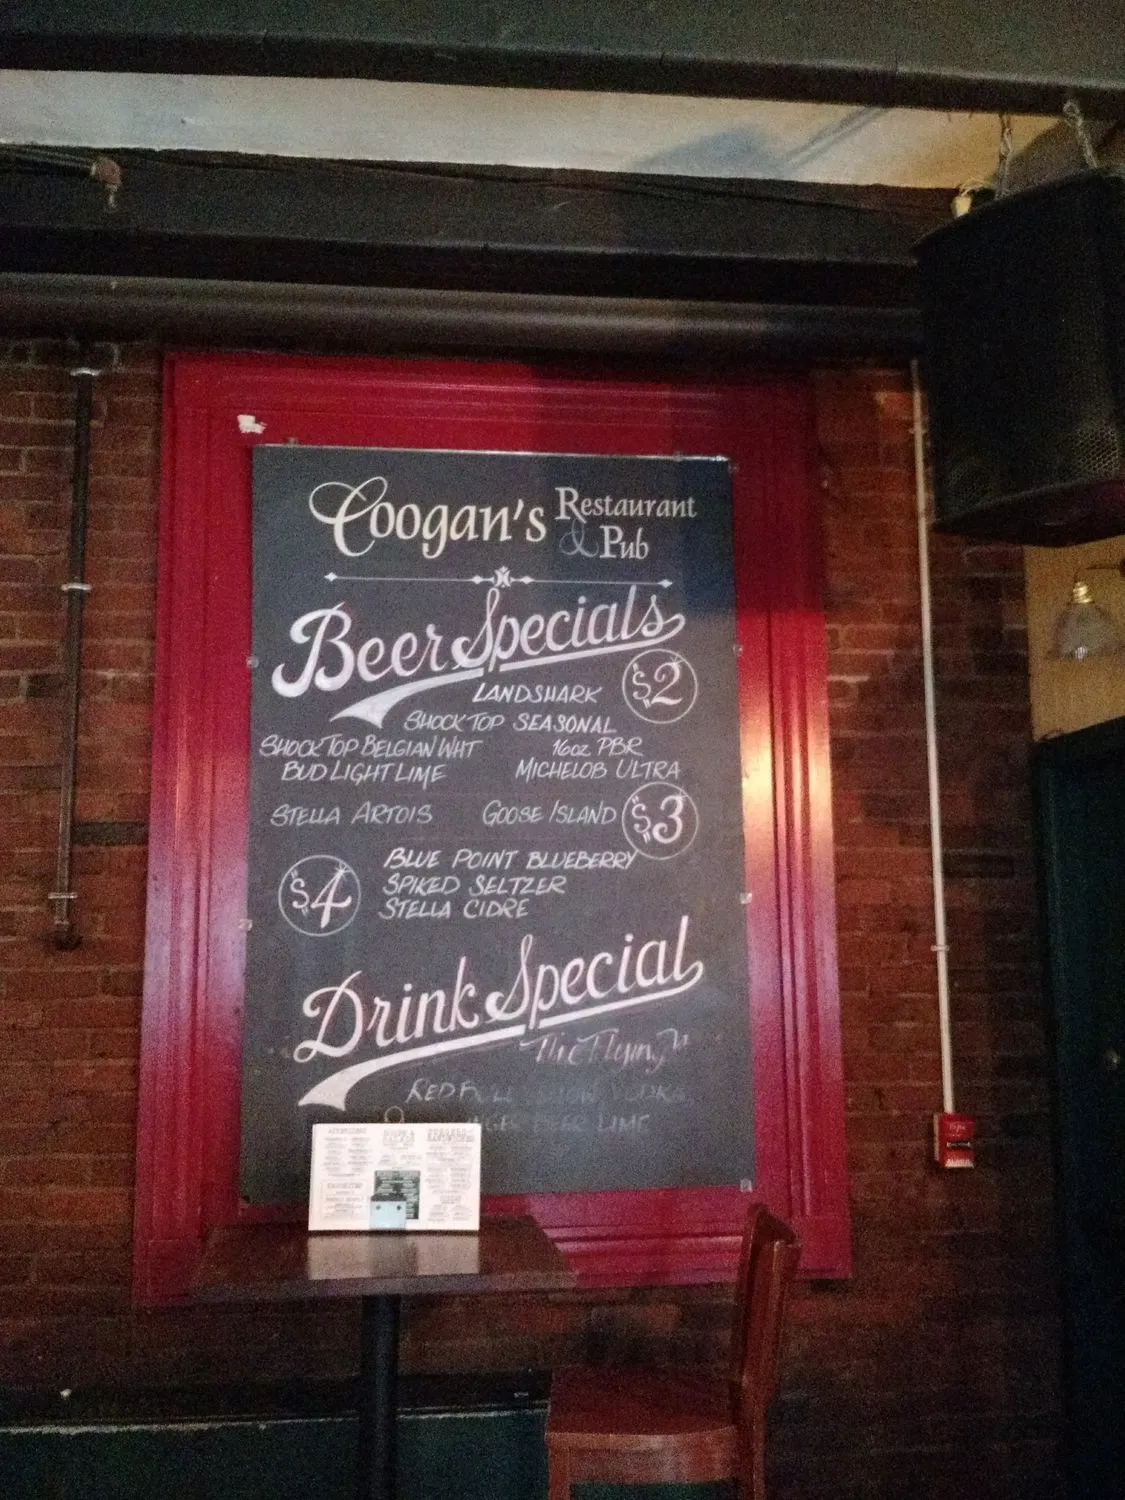 Coogan's Restaurant
& Pub
Beer Specials
LANDSHARK $2
SHOCK TOP SEASONAL
SHOCK TOP BELGIAN WHT 16oz PBR
BUD LIGHT LIME MICHELOB ULTRA
STELLA ARTOIS GOOSE ISLAND $3
BLUE POINT BLUEBERRY
$4 SPIKED SELTZER
STELLA CIDRE
Drink Special
"The Flying"
RED BULL VODKA
BEER LIME